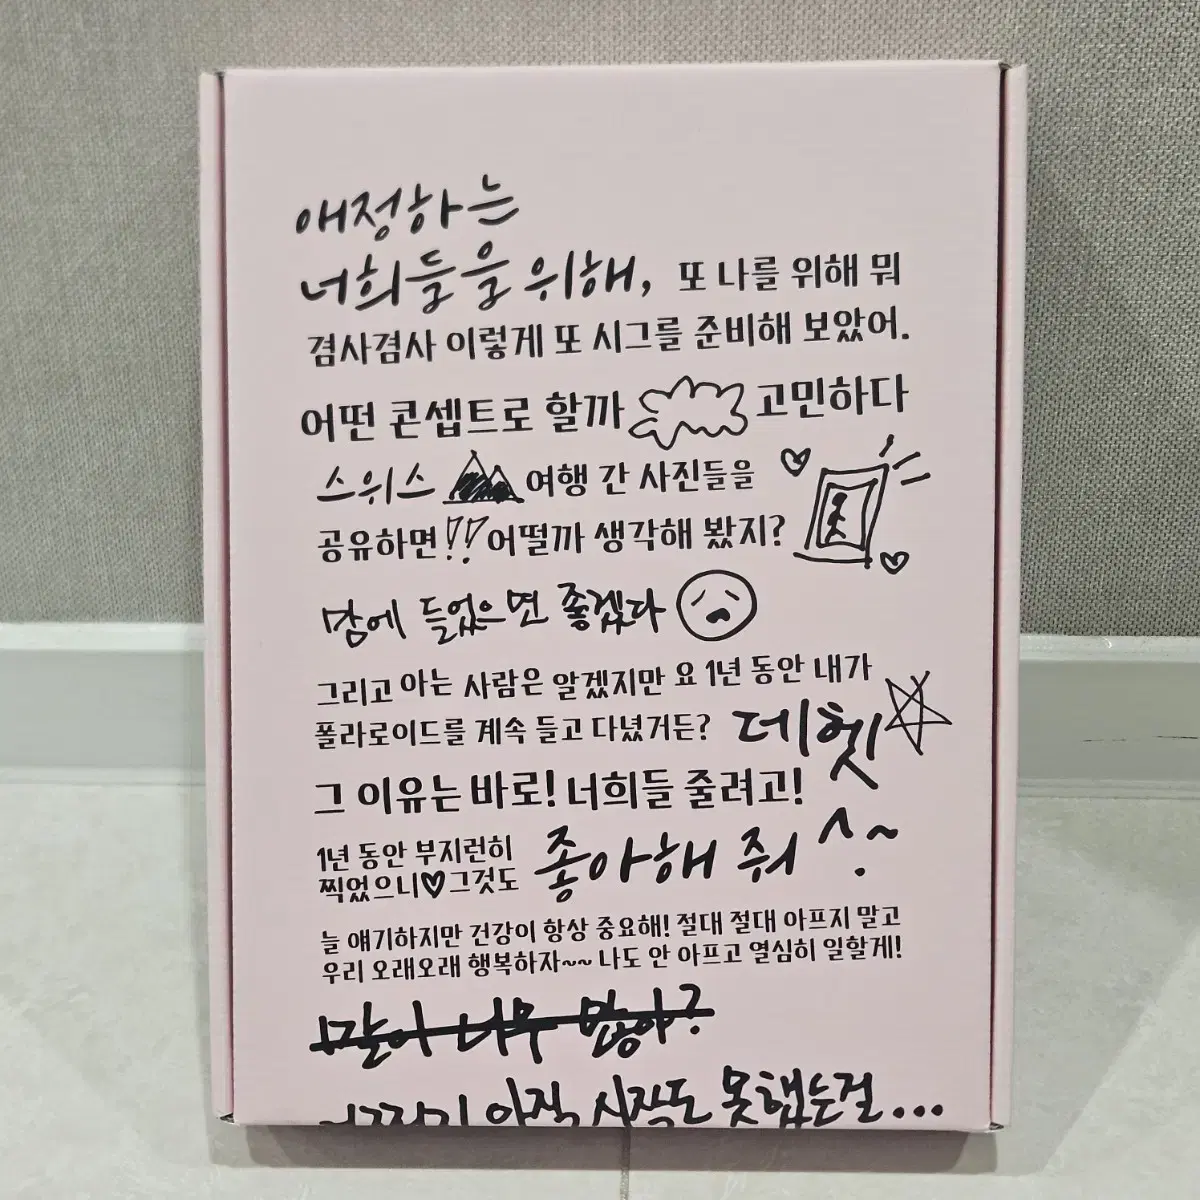 애정하는
너희들을 위해, 또 나를 위해 뭐
겸사겸사 이렇게 또 시그를 준비해 보았어.
어떤 콘셉트로 할까 고민하다
스위스 여행 간 사진들을
공유하면!! 어떨까 생각해 봤지?
맘에 들었으면 좋겠다
그리고 아는 사람은 알겠지만 요 1년 동안 내가
폴라로이드를 계속 들고 다녔거든? 데헷
그 이유는 바로! 너희들 줄려고!
1년 동안 부지런히
찍었으니♥그것도 좋아해 줘 ^.~
늘 얘기하지만 건강이 항상 중요해! 절대 절대 아프지 말고
우리 오래오래 행복하자~~ 나도 안 아프고 열심히 일할게!
너무 많아?
아직 시작도 못했는걸...